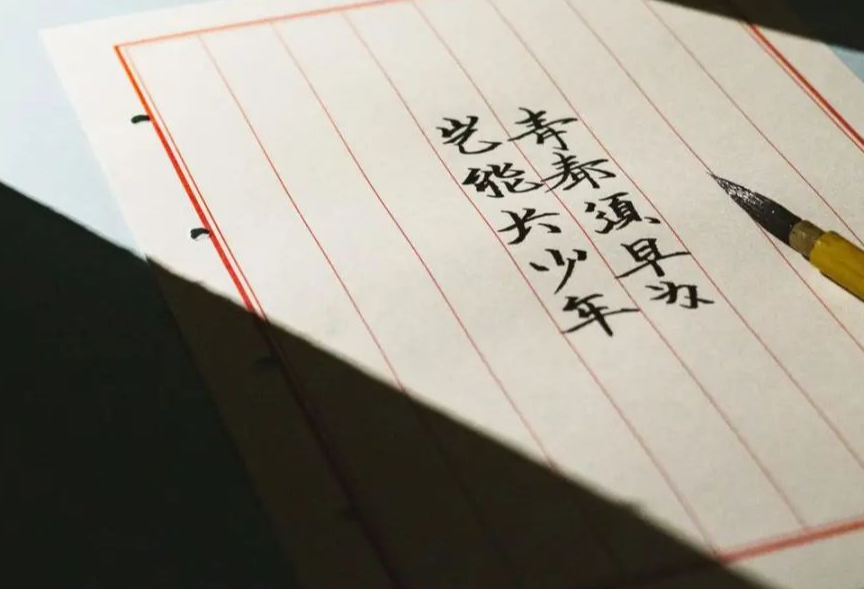 青春須早为
岂能长少年